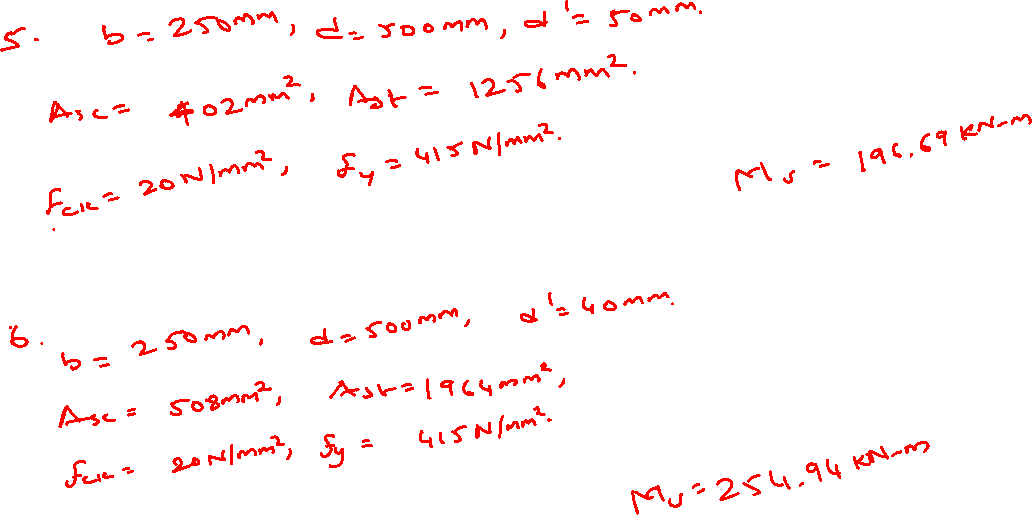 5. b = 250mm, d = 500mm, d' = 50mm.
Asc = 402mm², Ast = 1256mm².
fck = 20N/mm², fy = 415N/mm².
Mu = 196.69 KN-m
6. b = 250mm, d = 500mm, d' = 40mm.
Asc = 508mm², Ast = 1964mm²,
fck = 20N/mm², fy = 415N/mm².
Mu = 254.94 KN-m